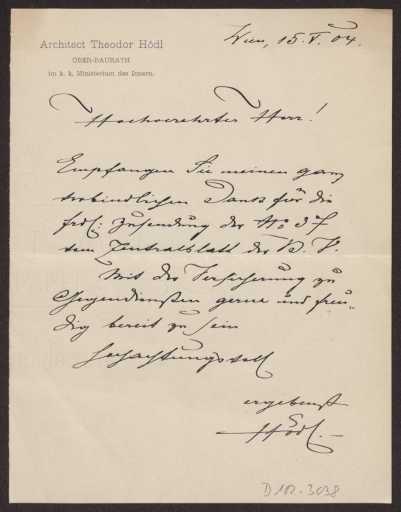 Architect Theodor Hödl
OBER-BAURATH
im k. k. Ministerium des Innern.
Wien, 15. V. 04.
Hochverehrter Herr!
Empfangen Sie meinen ganz
verbindlichen Dank für die
frdl: Zusendung der No 37
vom Zentralblatt der B. V.
Mit der Versicherung zu
Gegendiensten gerne und freu-
dig bereit zu sein
hochachtungsvoll
ergebenst
Hödl.
D 102-3038